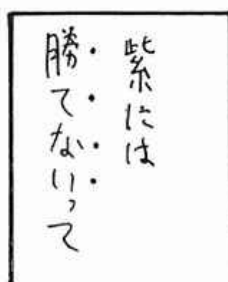 紫には
勝てないって